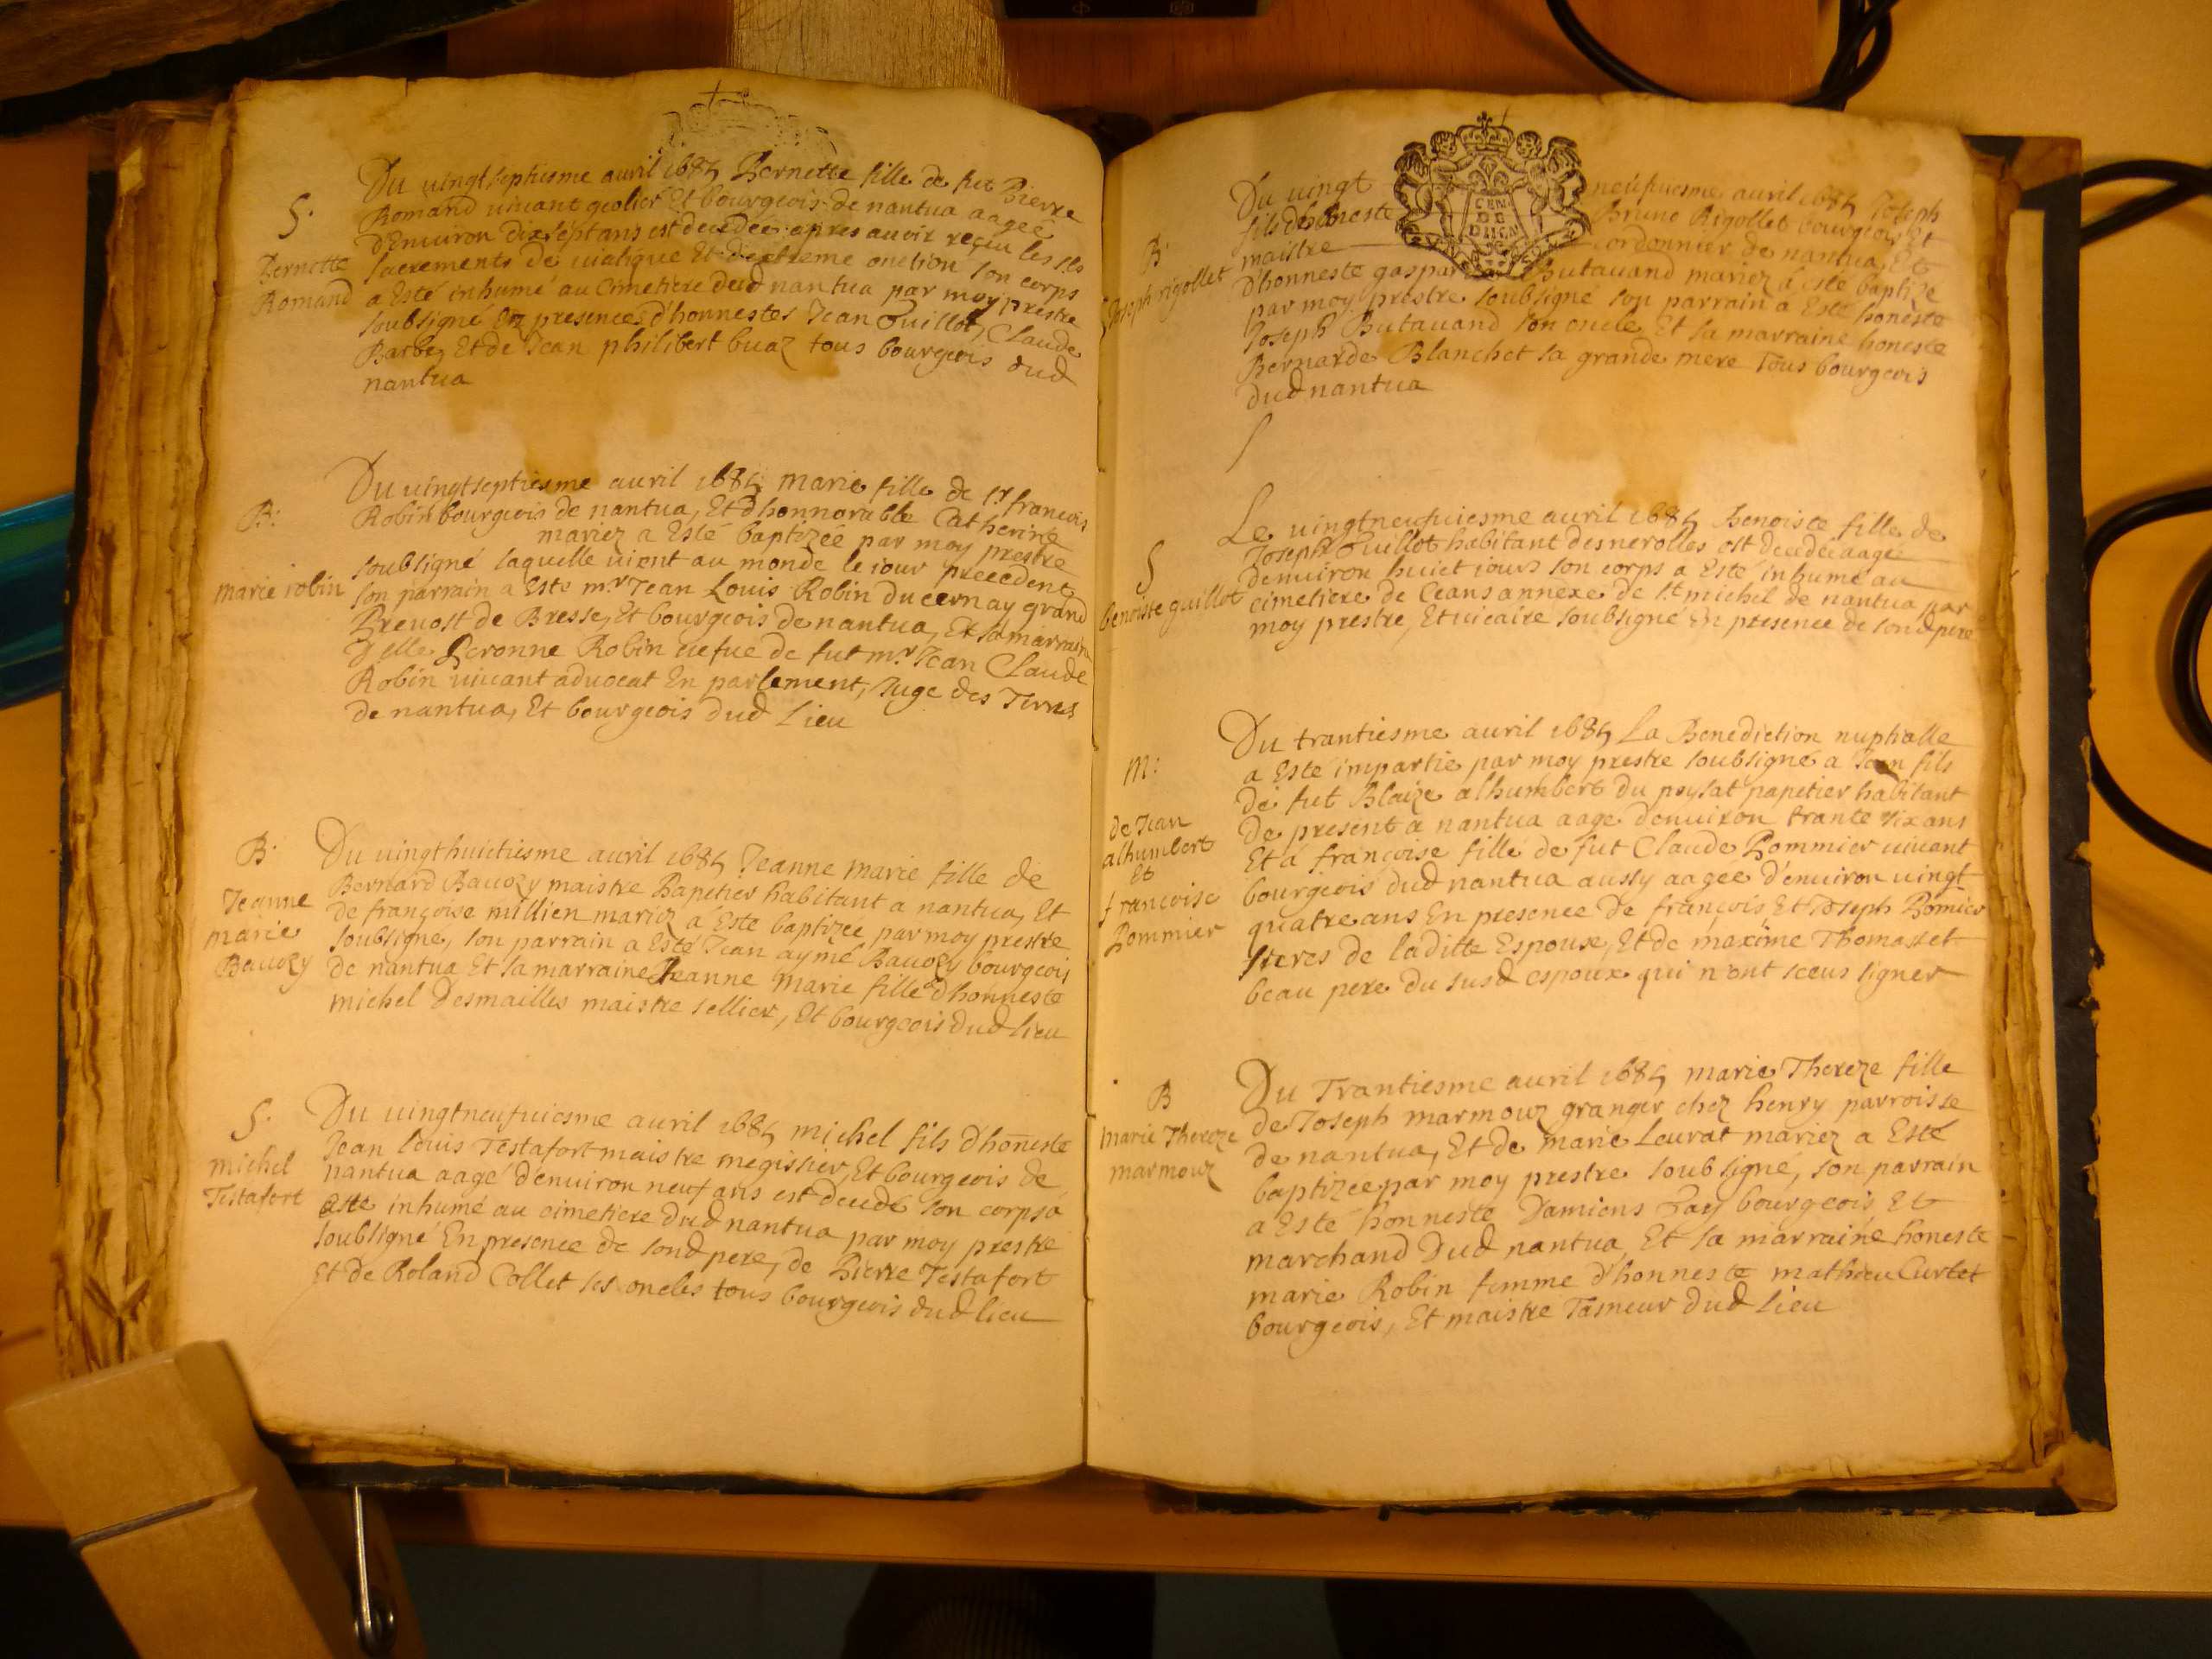 Du vingtseptiesme avril 1685 Bernette fille de fut Pierre
Romand vivant geolier Et bourgeois de nantua aagee
d'Environ dix sept ans est decedée apres avoir reçeu les sts
sacrements de viatique Et d'extreme onction son corps
a Esté inhumé au Cimetiere dud nantua par moy prestre
soubsigné En presences d'honnestes Jean Guillot, Claude
Barbez Et de Jean philibert buaz tous bourgeois dud
nantua
S.
Bernette
Romand
Du vingtseptiesme avril 1685 marie fille de sr francois
Robin bourgeois de nantua, Et d'honnorable Catherine
mariez a Esté baptizée par moy prestre
soubsigné laquelle vient au monde le iour precedent
son parrain a Esté mr Jean Louis Robin ducernay grand
Prevost de Bresse, Et bourgeois de nantua, Et sa marraine
delle Peronne Robin vefue de fut mr Jean Claude
Robin vivant advocat En parlement, Juge des Terres
de nantua, Et bourgeois dud Lieu
B:
marie robin
Du vingthuictiesme avril 1685 Jeanne marie fille de
Bernard Bavozy maistre Papetier habitant a nantua, Et
de françoise millien mariez a Esté baptizee par moy prestre
soubsigné, son parrain a Esté Jean aymé Bavozy bourgeois
de nantua Et sa marraine Jeanne marie fille d'honneste
michel Desmailles maistre sellier, Et bourgeois dud lieu
B.
Jeanne
marie
Bavozy
Du vingtneufviesme avril 1685 michel fils d'honeste
Jean louis Testafort maistre megissier, Et bourgeois de
nantua aagé d'environ neuf ans est decedé son corps a
Esté inhumé au cimetiere dud nantua par moy prestre
soubsigné En presence de sond pere, de Pierre Testafort
Et de Roland Collet ses oncles tous bourgeois dud lieu
S.
michel
Testafort
Du vingt neufviesme avril 1685 Joseph
fils d'honeste Bruno Rigollet bourgeois Et
maistre cordonnier de nantua, Et
d'honneste gaspar Butavand mariez a esté baptize
par moy prestre soubsigné son parrain a Esté honeste
Joseph Butavand son oncle Et sa marraine honeste
Bernarde Blanchet sa grande mere Tous bourgeois
dud nantua
B
Joseph rigollet
GEN
DE
DIION
Le vingtneufviesme avril 1685 Benoiste fille de
Joseph Guillot habitant desnerolles est decedée aagee
denviron huict iours son corps a Esté inhumé au
cimetiere de Ceans annexe de st michel de nantua par
moy prestre, Et vicaire soubsigné En presence de sond pere
S
benoiste guillot
Du trantiesme avril 1685 La Benediction nuptialle
a Esté impartie par moy prestre soubsigné a Jean fils
de fut Blaize alhumbert du poysat papetier habitant
de present a nantua aagé denviron trante six ans
Et a françoise fille de fut Claude Pommier vivant
bourgeois dud nantua aussy aagee d'environ vingt
quatre ans En presence de françois Et Joseph Pomier
freres de laditte Espouse, Et de maxime Thomasset
beau pere du susd espoux qui n'ont sceus signer
M:
de Jean
alhumbert
Et
francoise
Pommier
Du Trantiesme avril 1685 marie Thereze fille
de Joseph marmouz granger chez henry parroisse
de nantua, Et de marie Levrat mariez a Esté
baptizee par moy prestre soubsigné, son parrain
a Esté honneste Damiens Jay bourgeois Et
marchand Dud nantua, Et sa marraine honeste
marie Robin femme d'honneste mathieu Curtet
bourgeois, Et maistre Tasneur dud Lieu
B
marie Thereze
marmouz